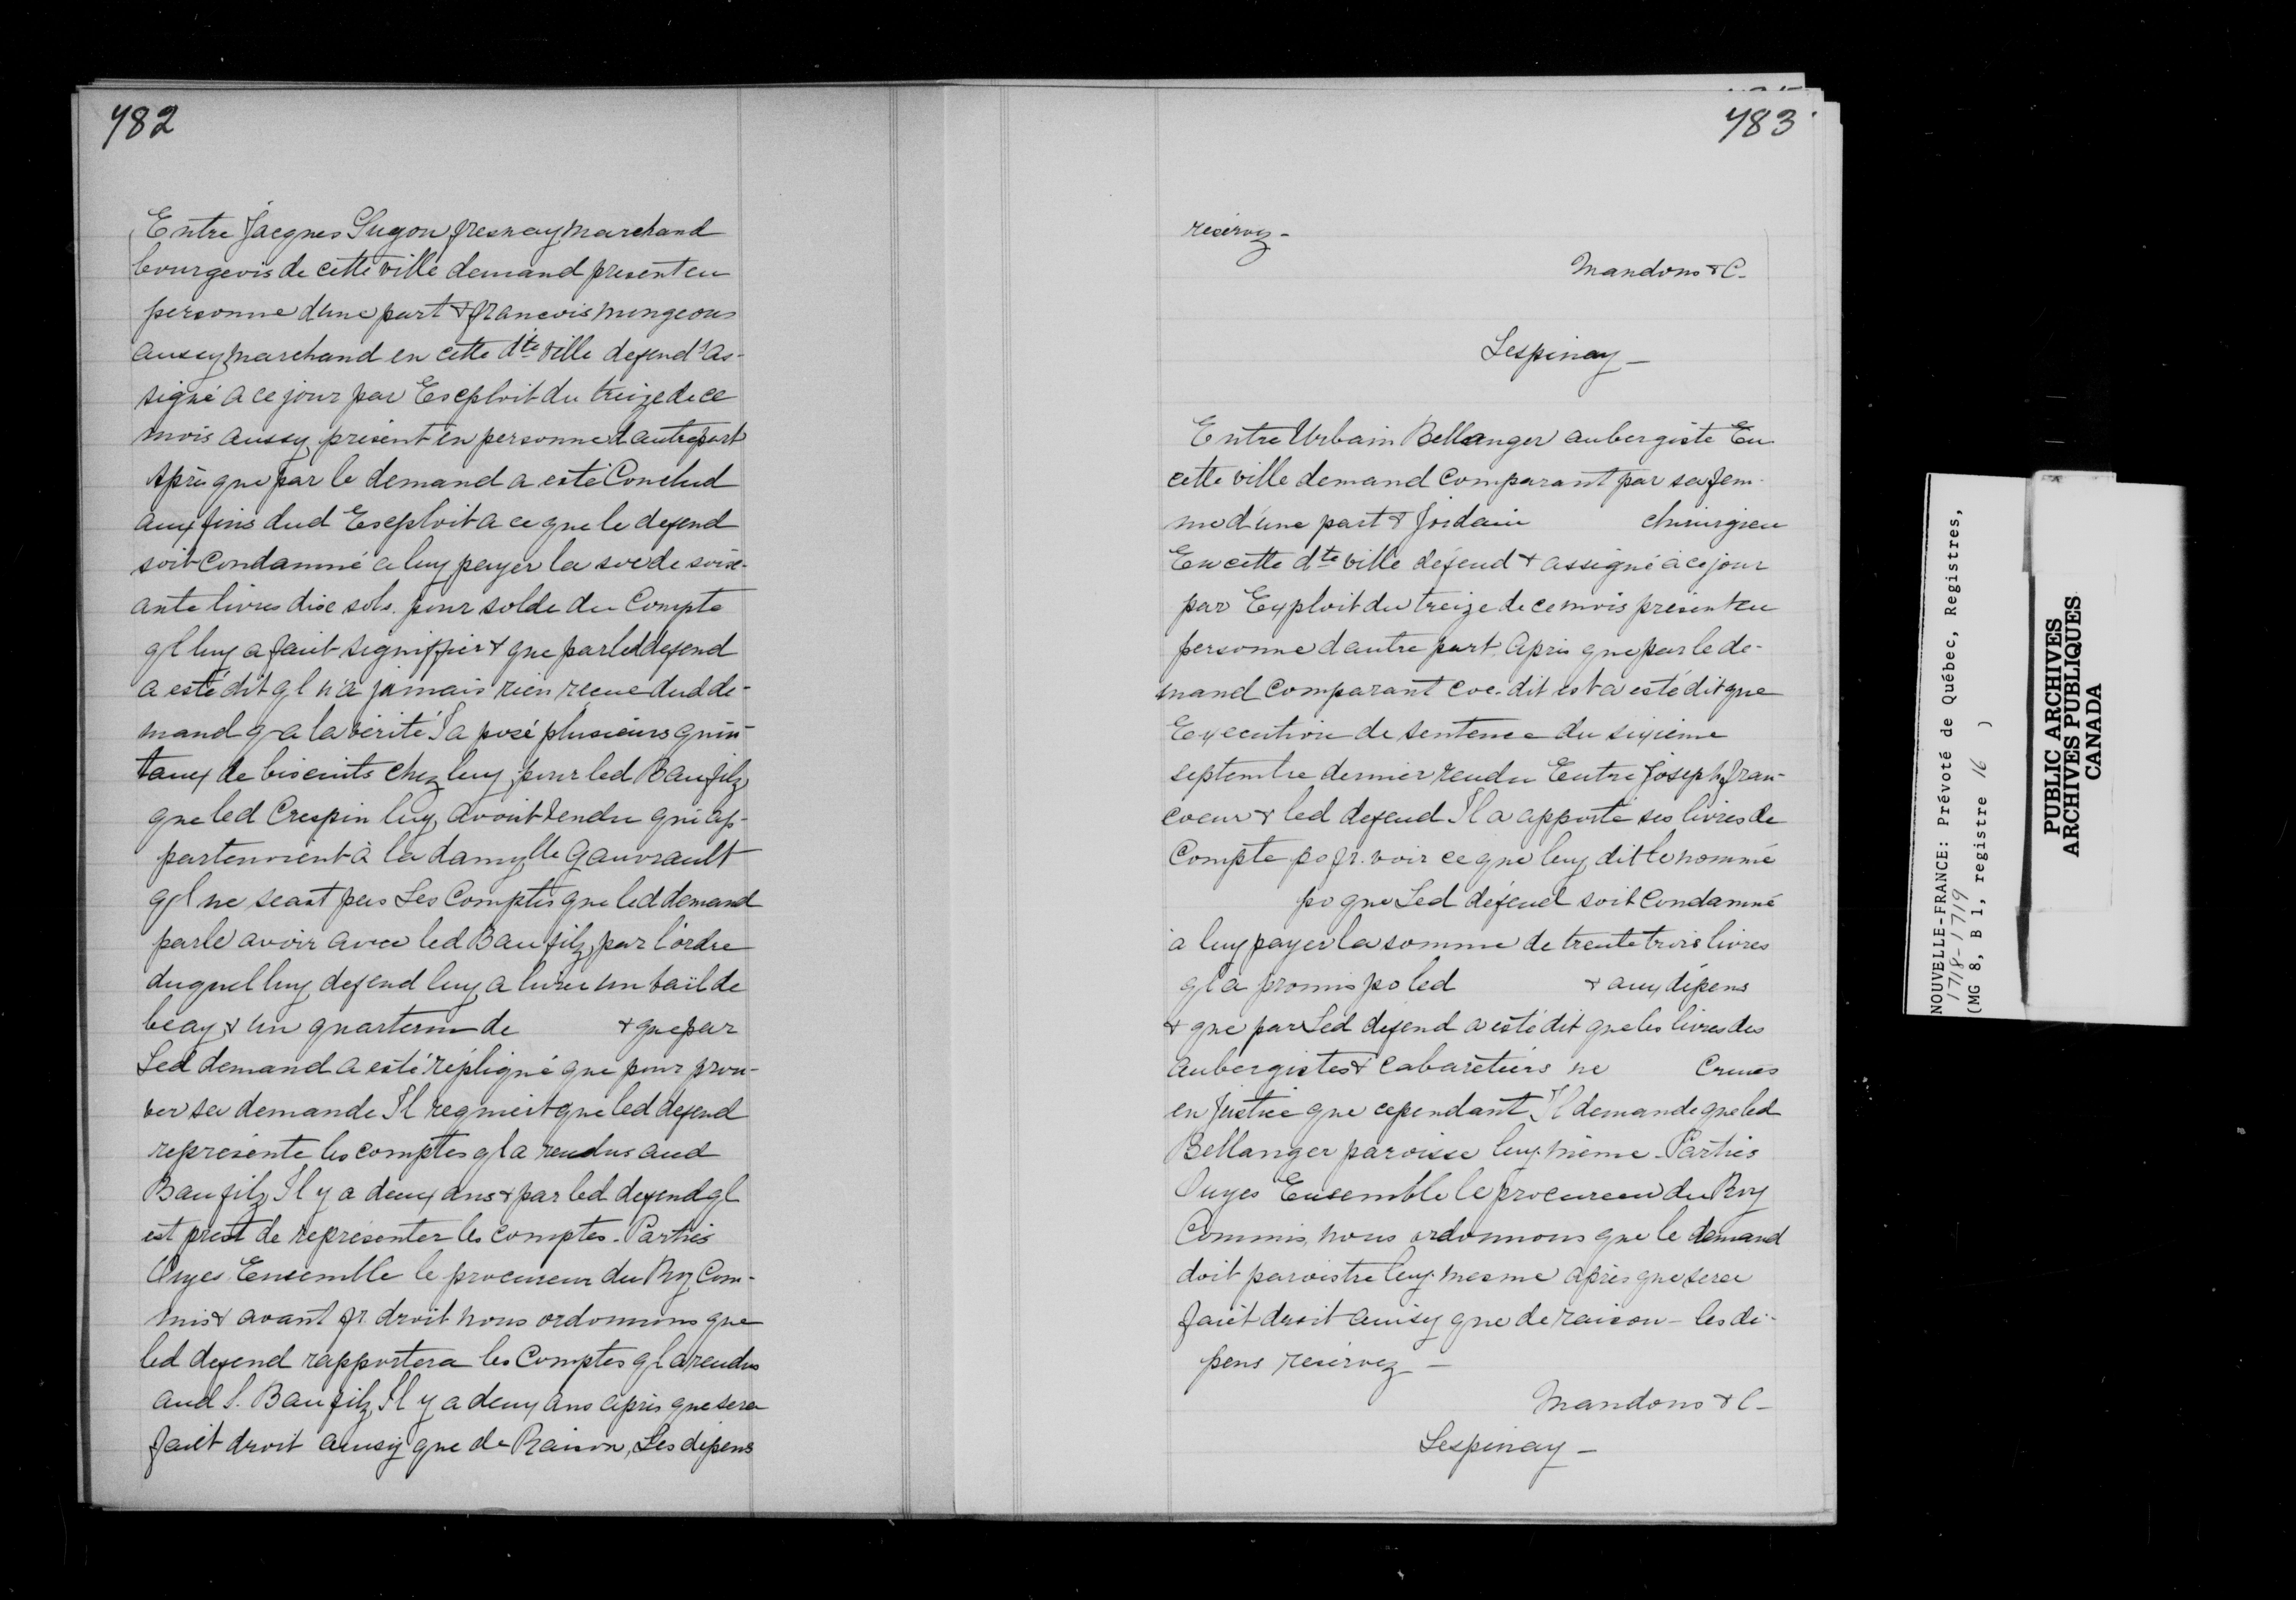 782
Entre Jacques Gugou fresnay marchand
bourgeois de cette ville demand present en
personne d'une part & francois mongeous
aussy marchand en cette dte ville defendt as-
signé a ce jour par Exploit du treize de ce
mois aussy présent en personne d autre part
Après que par le demand a esté Conclud
aux fins dud Exploit a ce que le defend
soit Condamné a luy payer la soe de soix-
ante livres dix sols. pour solde du Compte
ql luy a fait signiffier & que par led defend
a esté dit ql n'a jamais rien recue dud de-
mand q a la vérité Il a posé plusieurs quin-
taux de biscuits chez luy pour led Baufilz
que led Crespin luy avoit vendu qui ap-
partenoient à la damylle Gauvrault
ql ne scait pas Les Comptes que led demand
parle avoir avec led Baufilz, par l'ordre
duquel luy defend luy a livré un bail de
beay & un quarteron de & que par
Led demand a esté répliqué que pour prou-
ver sa demande Il requiert que led defend
représente les comptes ql a rendus aud
Baufilz Il y a deux ans & par led defend ql
est prest de représenter les comptes - Parties
Ouyes Ensemble le procureur du Roy Com-
mis & avant fr. droit nous ordonnons que
led defend rapportera les Comptes ql a rendus
aud S. Baufilz, Il y a deux ans après que sera
fait droit ainsy que de Raison, Les dépens
783
réservez -
Mandons & C -
Lespinay -
Entre Urbain Bellanger aubergiste En
cette ville demand Comparant par sa fem-
me d'une part & Jordain chirurgien
En cette dte ville défend & assigné à ce jour
par Exploit du treize de ce mois présent en
personne d autre part après que par le de-
mand Comparant coe. dit est a esté dit que
Exécution de sentence du sixieme
septembre dernier rendu Entre Joseph fran-
coeur & led defend Il a apporté ses livres de
Compte po fr. voir ce que luy dit le nommé
po que Led défend soit Condamné
à luy payer la somme de trente trois livres
ql a promis po led & aux dépens
& que par Led defend a esté dit que les livres des
Aubergistes & Cabaretiers ne Crues
en Justice que cependant Il demande que led
Bellanger paroisse luy-même - Parties
Ouyes Ensemble le procureur du Roy
Commis, nous ordonnons que le demand
doit paroistre luy-mesme après que sera
fait droit ainsy que de raison - les dé-
pens réservez -
Mandons & C -
Lespinay -
NOUVELLE-FRANCE: Prévoté de Québec, Registres,
1718-1719
(MG 8, B 1, registre 16 )
PUBLIC ARCHIVES
ARCHIVES PUBLIQUES
CANADA